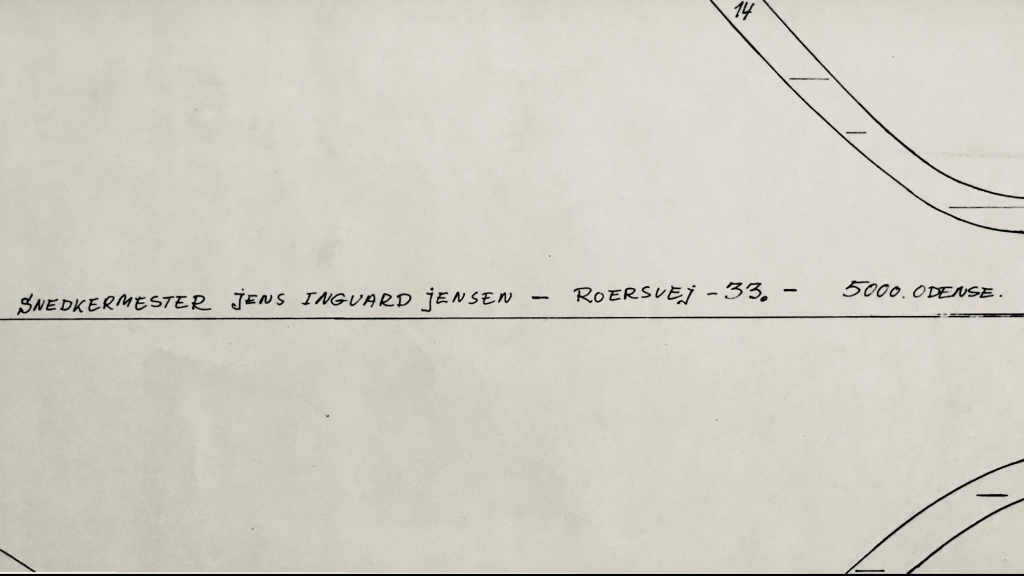 14
SNEDKERMESTER JENS INGVARD JENSEN - ROERSVEJ - 33. - 5000. ODENSE.